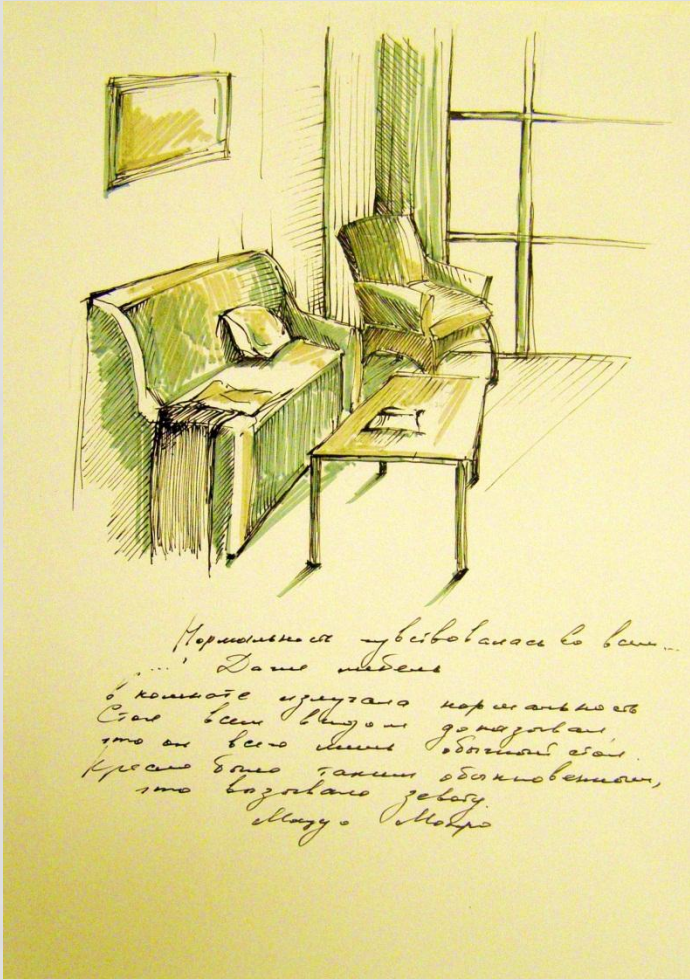 Нормальность чувствовалась во всем...
...! Даже мебель
в комнате излучала нормальность
Стол всем видом доказывал,
что он всего лишь обычный стол.
Кресло было таким обыкновенным,
что вызывало зевоту.
Мазуо Монро